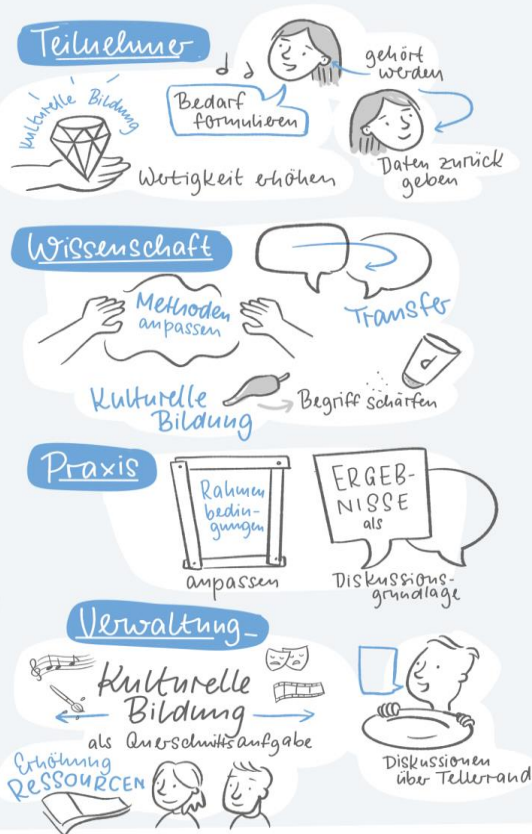 Teilnehmer
Kulturelle Bildung
Bedarf
formulieren
gehört
werden
Wertigkeit erhöhen
Daten zurück
geben
Wissenschaft
Methoden
anpassen
Transfer
Kulturelle
Bildung
Begriff schärfen
Praxis
Rahmen
bedin-
gungen
anpassen
ERGEB-
NISSE
als
Diskussions-
grundlage
Verwaltung
Kulturelle
Bildung
als Querschnittsaufgabe
Erhöhung
RESSOURCEN
Diskussionen
über Tellerrand